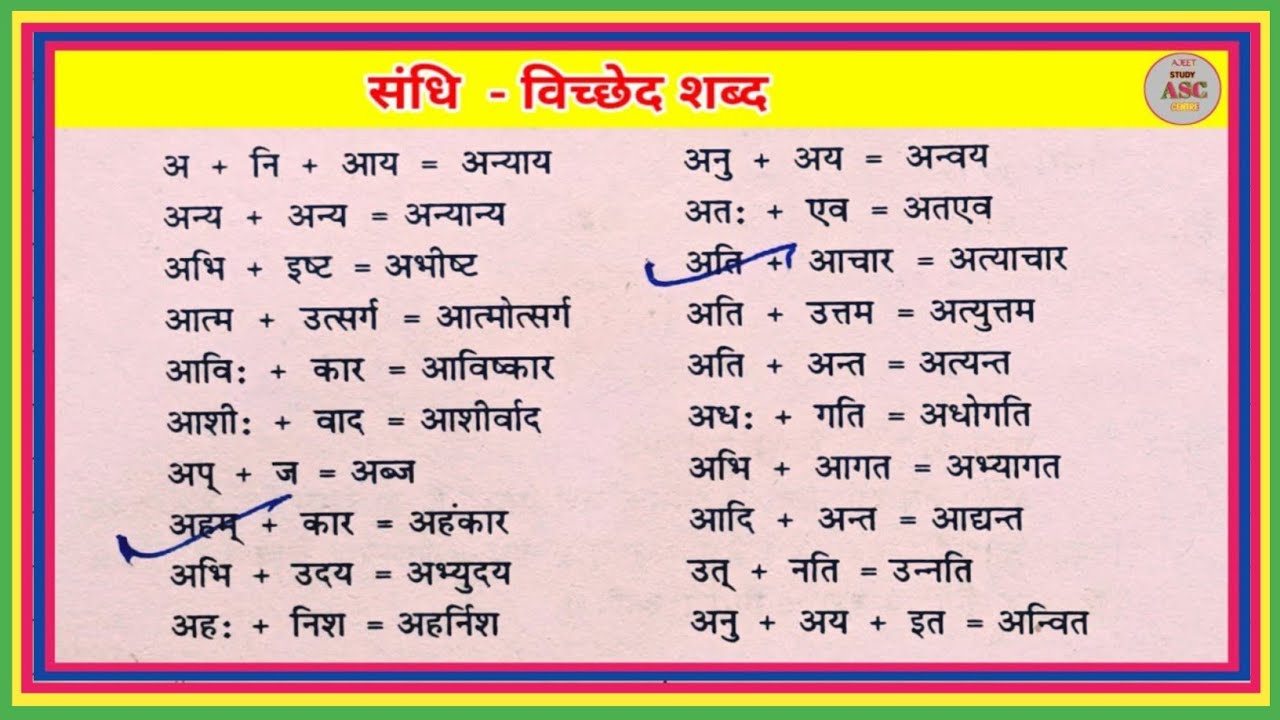 संधि - विच्छेद शब्द
AJEET
STUDY
ASC
CENTRE
अ + नि + आय = अन्याय
अन्य + अन्य = अन्यान्य
अभि + इष्ट = अभीष्ट
आत्म + उत्सर्ग = आत्मोत्सर्ग
आविः + कार = आविष्कार
आशीः + वाद = आशीर्वाद
अप् + ज = अब्ज
अहम् + कार = अहंकार
अभि + उदय = अभ्युदय
अहः + निश = अहर्निश
अनु + अय = अन्वय
अतः + एव = अतएव
अति + आचार = अत्याचार
अति + उत्तम = अत्युत्तम
अति + अन्त = अत्यन्त
अधः + गति = अधोगति
अभि + आगत = अभ्यागत
आदि + अन्त = आद्यन्त
उत् + नति = उन्नति
अनु + अय + इत = अन्वित